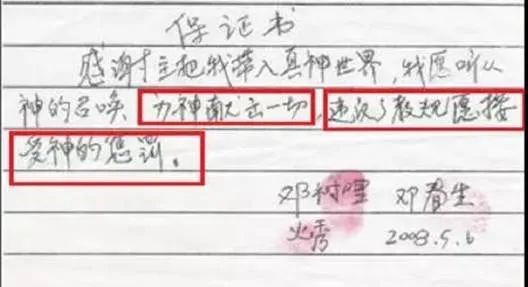 保证书
感谢主把我带入真神世界,我愿听从
神的召唤 为神献出一切,违反了教规愿接
受神的惩罚。
邓树 邓春生
火秀 2003.5.6